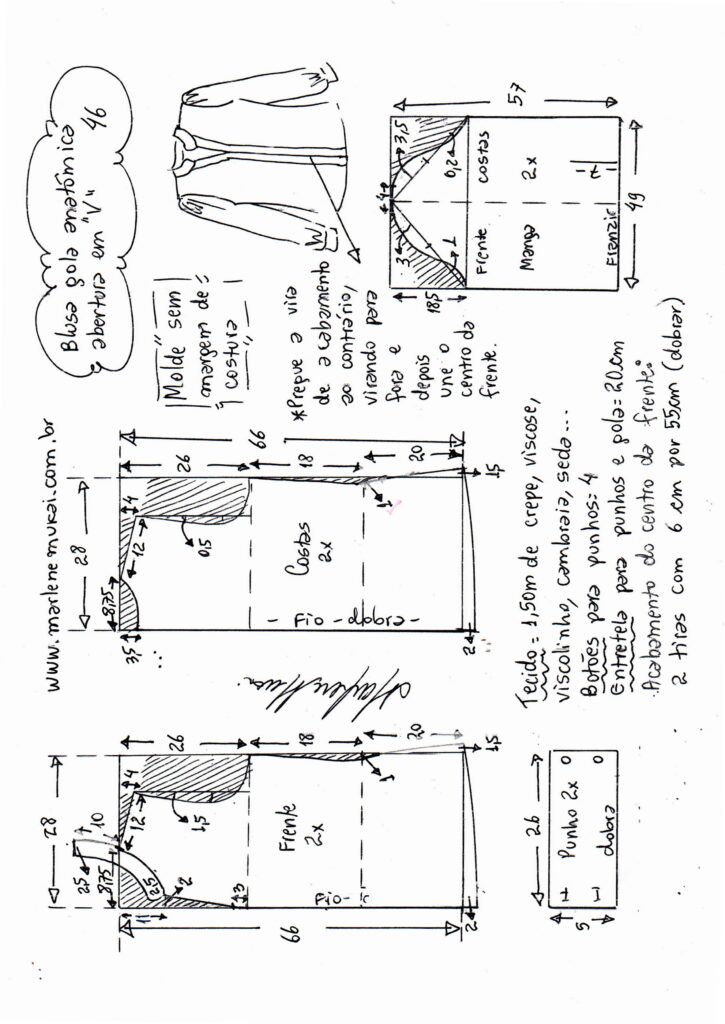 www.marlenemukai.com.br
Blusa gola anatômica
abertura em "V"
46
28
8,75
10
2,5
2,5
4
12
1,5
2
11
3
26
18
20
66
1
1,5
2
Frente
2x
Fio
28
8,75
3,5
4
12
0,5
26
18
20
66
1
1,5
2
Costas
2x
Fio - dobra
Molde sem
margem de
costura
*Pregue a vira
de acabamento
ao contrário,
virando para
fora e
depois
une o
centro da
frente.
4
3
3,5
1
0,2
18,5
57
Frente
Costas
Manga
2x
7
Franzir
49
26
5
Punho 2x
dobra
Tecido = 1,50m de crepe, viscose,
viscolinho, cambraia, seda...
Botões para punhos: 4
Entretela para punhos e gola = 20cm
Acabamento do centro da frente:
2 tiras com 6 cm por 55cm (dobrar)